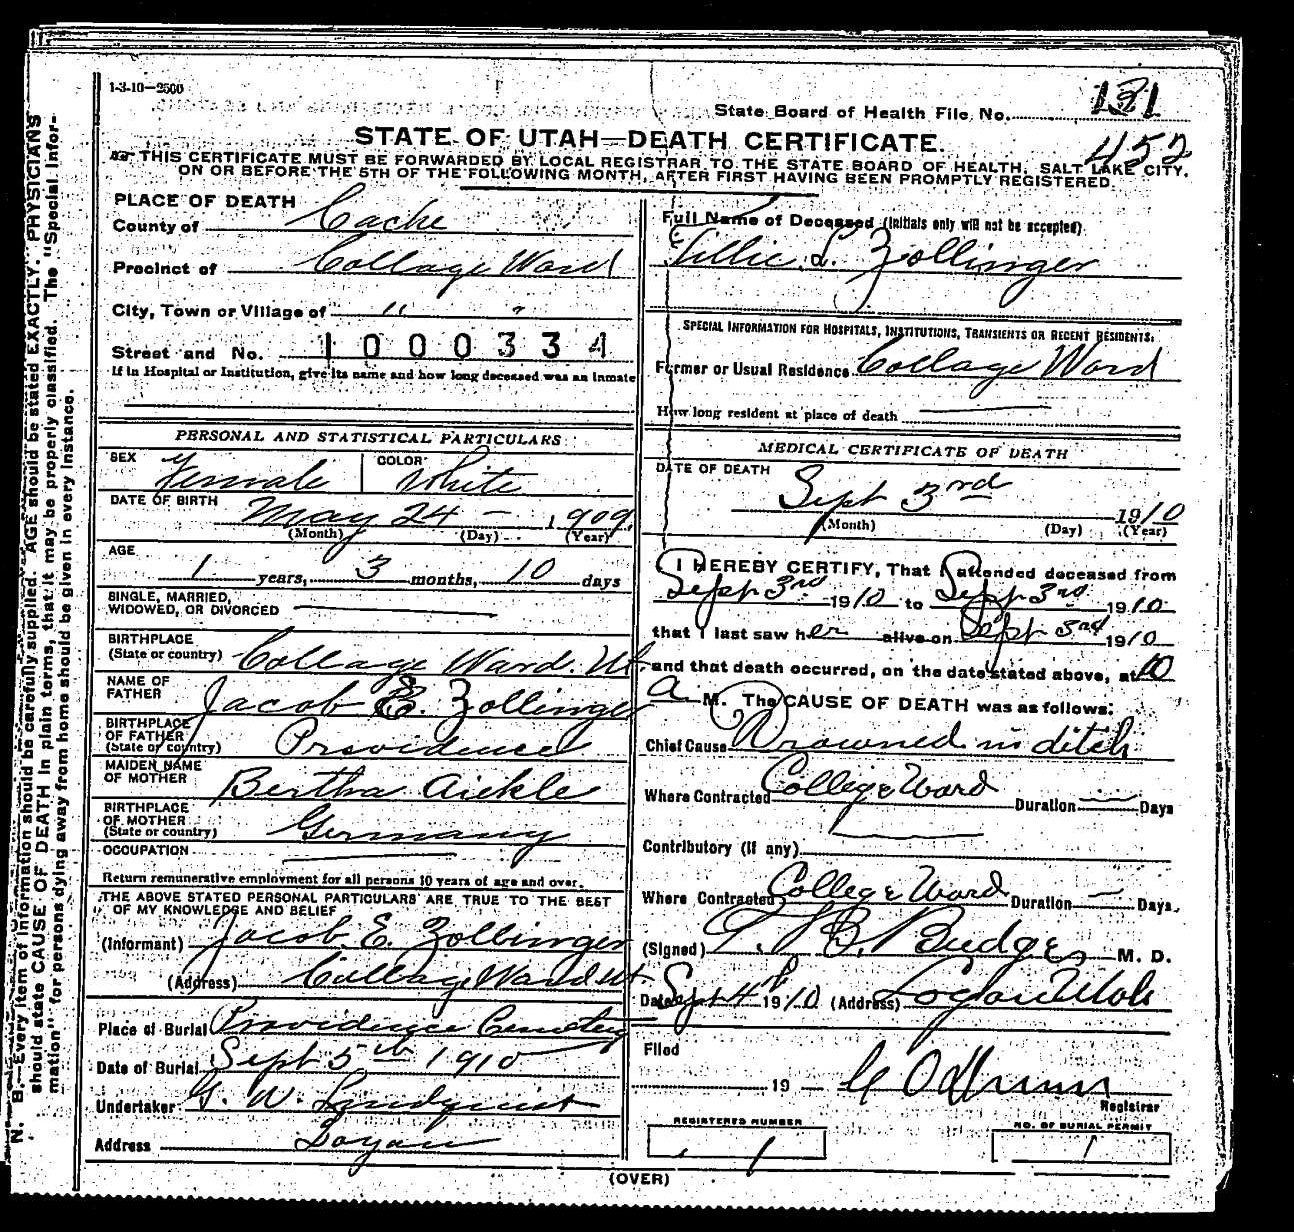 1-3-10-2500
State Board of Health File No. 131
452
STATE OF UTAH—DEATH CERTIFICATE.
THIS CERTIFICATE MUST BE FORWARDED BY LOCAL REGISTRAR TO THE STATE BOARD OF HEALTH, SALT LAKE CITY,
ON OR BEFORE THE 5TH OF THE FOLLOWING MONTH, AFTER FIRST HAVING BEEN PROMPTLY REGISTERED.
N. B.—Every item of information should be carefully supplied. AGE should be stated EXACTLY. PHYSICIANS
should state CAUSE OF DEATH in plain terms, that it may be properly classified. The "Special Infor-
mation" for persons dying away from home should be given in every instance.
PLACE OF DEATH
County of Cache
Precinct of Collage Ward
City, Town or Village of " "
Street and No. 1000334
If in Hospital or Institution, give its name and how long deceased was an inmate
PERSONAL AND STATISTICAL PARTICULARS
SEX Female COLOR White
DATE OF BIRTH May 24 - 1909
(Month) (Day) (Year)
AGE 1 years, 3 months, 10 days
SINGLE, MARRIED,
WIDOWED, OR DIVORCED
BIRTHPLACE
(State or country) Collage Ward. Ut
NAME OF
FATHER Jacob E. Zollinger
BIRTHPLACE
OF FATHER
(State or country) Providence
MAIDEN NAME
OF MOTHER Bertha Aickle
BIRTHPLACE
OF MOTHER
(State or country) Germany
OCCUPATION
Return remunerative employment for all persons 10 years of age and over.
THE ABOVE STATED PERSONAL PARTICULARS ARE TRUE TO THE BEST
OF MY KNOWLEDGE AND BELIEF
(Informant) Jacob E. Zollinger
(Address) Collage Ward Ut
Place of Burial Providence Cemetery
Date of Burial Sept 5th 1910
Undertaker G. W. Lindquist
Address Logan
Full Name of Deceased (Initials only will not be accepted)
Lillie L. Zollinger
SPECIAL INFORMATION FOR HOSPITALS, INSTITUTIONS, TRANSIENTS OR RECENT RESIDENTS.
Former or Usual Residence Collage Ward
How long resident at place of death
MEDICAL CERTIFICATE OF DEATH
DATE OF DEATH
Sept 3rd 1910
(Month) (Day) (Year)
I HEREBY CERTIFY, That I attended deceased from
Sept 3rd 1910 to Sept 3rd 1910
that I last saw her alive on Sept 3rd 1910
and that death occurred, on the date stated above, at 10
a M. The CAUSE OF DEATH was as follows:
Chief Cause Drowned in ditch
Where Contracted College Ward Duration Days
Contributory (if any)
Where Contracted College Ward Duration Days
(Signed) T. B. Budge, M. D.
Date Sept 4th 1910 (Address) Logan Utah
Filed
19
Registrar
REGISTERED NUMBER
1
NO. OF BURIAL PERMIT
1
(OVER)